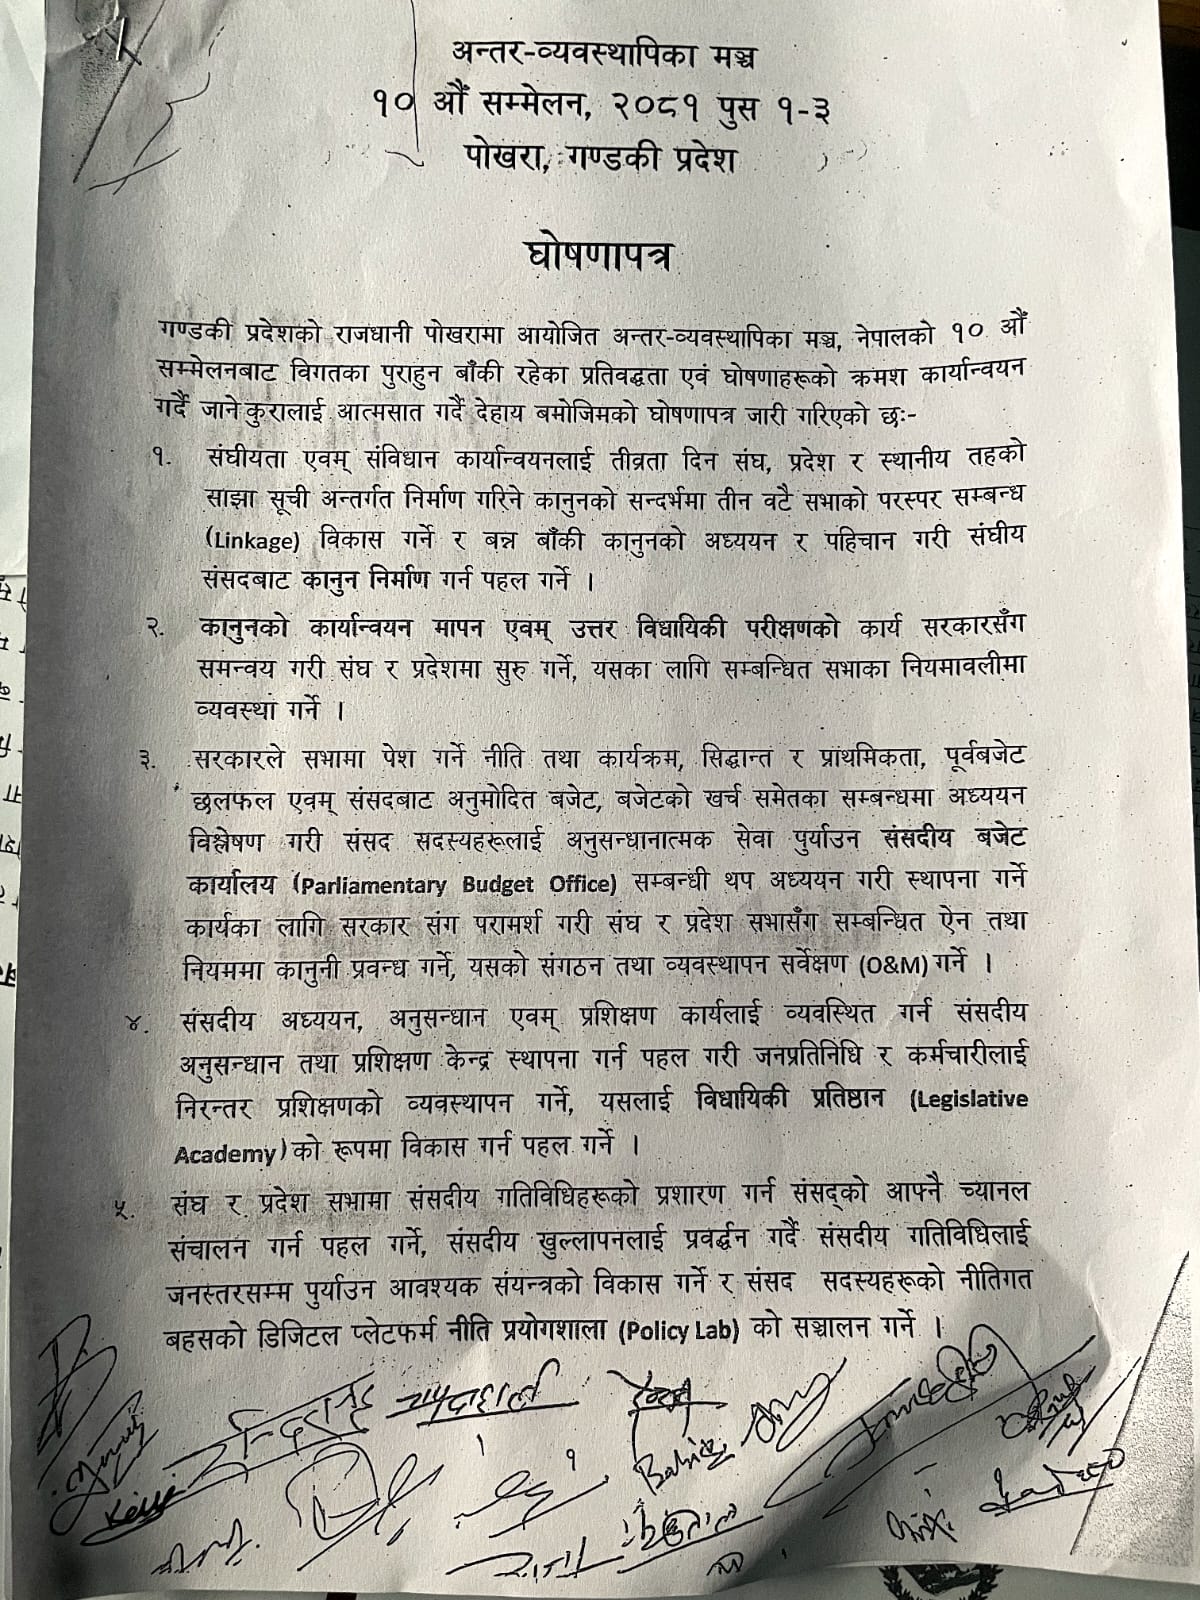 अन्तर-व्यवस्थापिका मञ्च
१० औं सम्मेलन, २०८१ पुस १-३
पोखरा, गण्डकी प्रदेश
घोषणापत्र
गण्डकी प्रदेशको राजधानी पोखरामा आयोजित अन्तर-व्यवस्थापिका मञ्च, नेपालको १० औं
सम्मेलनबाट विगतका पुराहुन बाँकी रहेका प्रतिवद्धता एवं घोषणाहरूको क्रमश कार्यान्वयन
गर्दै जाने कुरालाई आत्मसात गर्दै देहाय बमोजिमको घोषणापत्र जारी गरिएको छः-
१. संघीयता एवम् संविधान कार्यान्वयनलाई तीव्रता दिन संघ, प्रदेश र स्थानीय तहको
साझा सूची अन्तर्गत निर्माण गरिने कानुनको सन्दर्भमा तीन वटै सभाको परस्पर सम्बन्ध
(Linkage) विकास गर्ने र बन्न बाँकी कानुनको अध्ययन र पहिचान गरी संघीय
संसदबाट कानुन निर्माण गर्न पहल गर्ने ।
२. कानुनको कार्यान्वयन मापन एवम् उत्तर विधायिकी परीक्षणको कार्य सरकारसँग
समन्वय गरी संघ र प्रदेशमा सुरु गर्ने, यसका लागि सम्बन्धित सभाका नियमावलीमा
व्यवस्था गर्ने ।
३. सरकारले सभामा पेश गर्ने नीति तथा कार्यक्रम, सिद्धान्त र प्राथमिकता, पूर्वबजेट
छलफल एवम् संसदबाट अनुमोदित बजेट, बजेटको खर्च समेतका सम्बन्धमा अध्ययन
विश्लेषण गरी संसद सदस्यहरूलाई अनुसन्धानात्मक सेवा पुर्याउन संसदीय बजेट
कार्यालय (Parliamentary Budget Office) सम्बन्धी थप अध्ययन गरी स्थापना गर्ने
कार्यका लागि सरकार संग परामर्श गरी संघ र प्रदेश सभासँग सम्बन्धित ऐन तथा
नियममा कानुनी प्रवन्ध गर्ने, यसको संगठन तथा व्यवस्थापन सर्वेक्षण (O&M) गर्ने ।
४. संसदीय अध्ययन, अनुसन्धान एवम् प्रशिक्षण कार्यलाई व्यवस्थित गर्न संसदीय
अनुसन्धान तथा प्रशिक्षण केन्द्र स्थापना गर्न पहल गरी जनप्रतिनिधि र कर्मचारीलाई
निरन्तर प्रशिक्षणको व्यवस्थापन गर्ने, यसलाई विधायिकी प्रतिष्ठान (Legislative
Academy) को रूपमा विकास गर्न पहल गर्ने ।
५. संघ र प्रदेश सभामा संसदीय गतिविधिहरूको प्रशारण गर्न संसद्को आफ्नै च्यानल
संचालन गर्न पहल गर्ने, संसदीय खुल्लापनलाई प्रवर्द्धन गर्दै संसदीय गतिविधिलाई
जनस्तरसम्म पुर्याउन आवश्यक संयन्त्रको विकास गर्ने र संसद सदस्यहरूको नीतिगत
बहसको डिजिटल प्लेटफर्म नीति प्रयोगशाला (Policy Lab) को सञ्चालन गर्ने ।